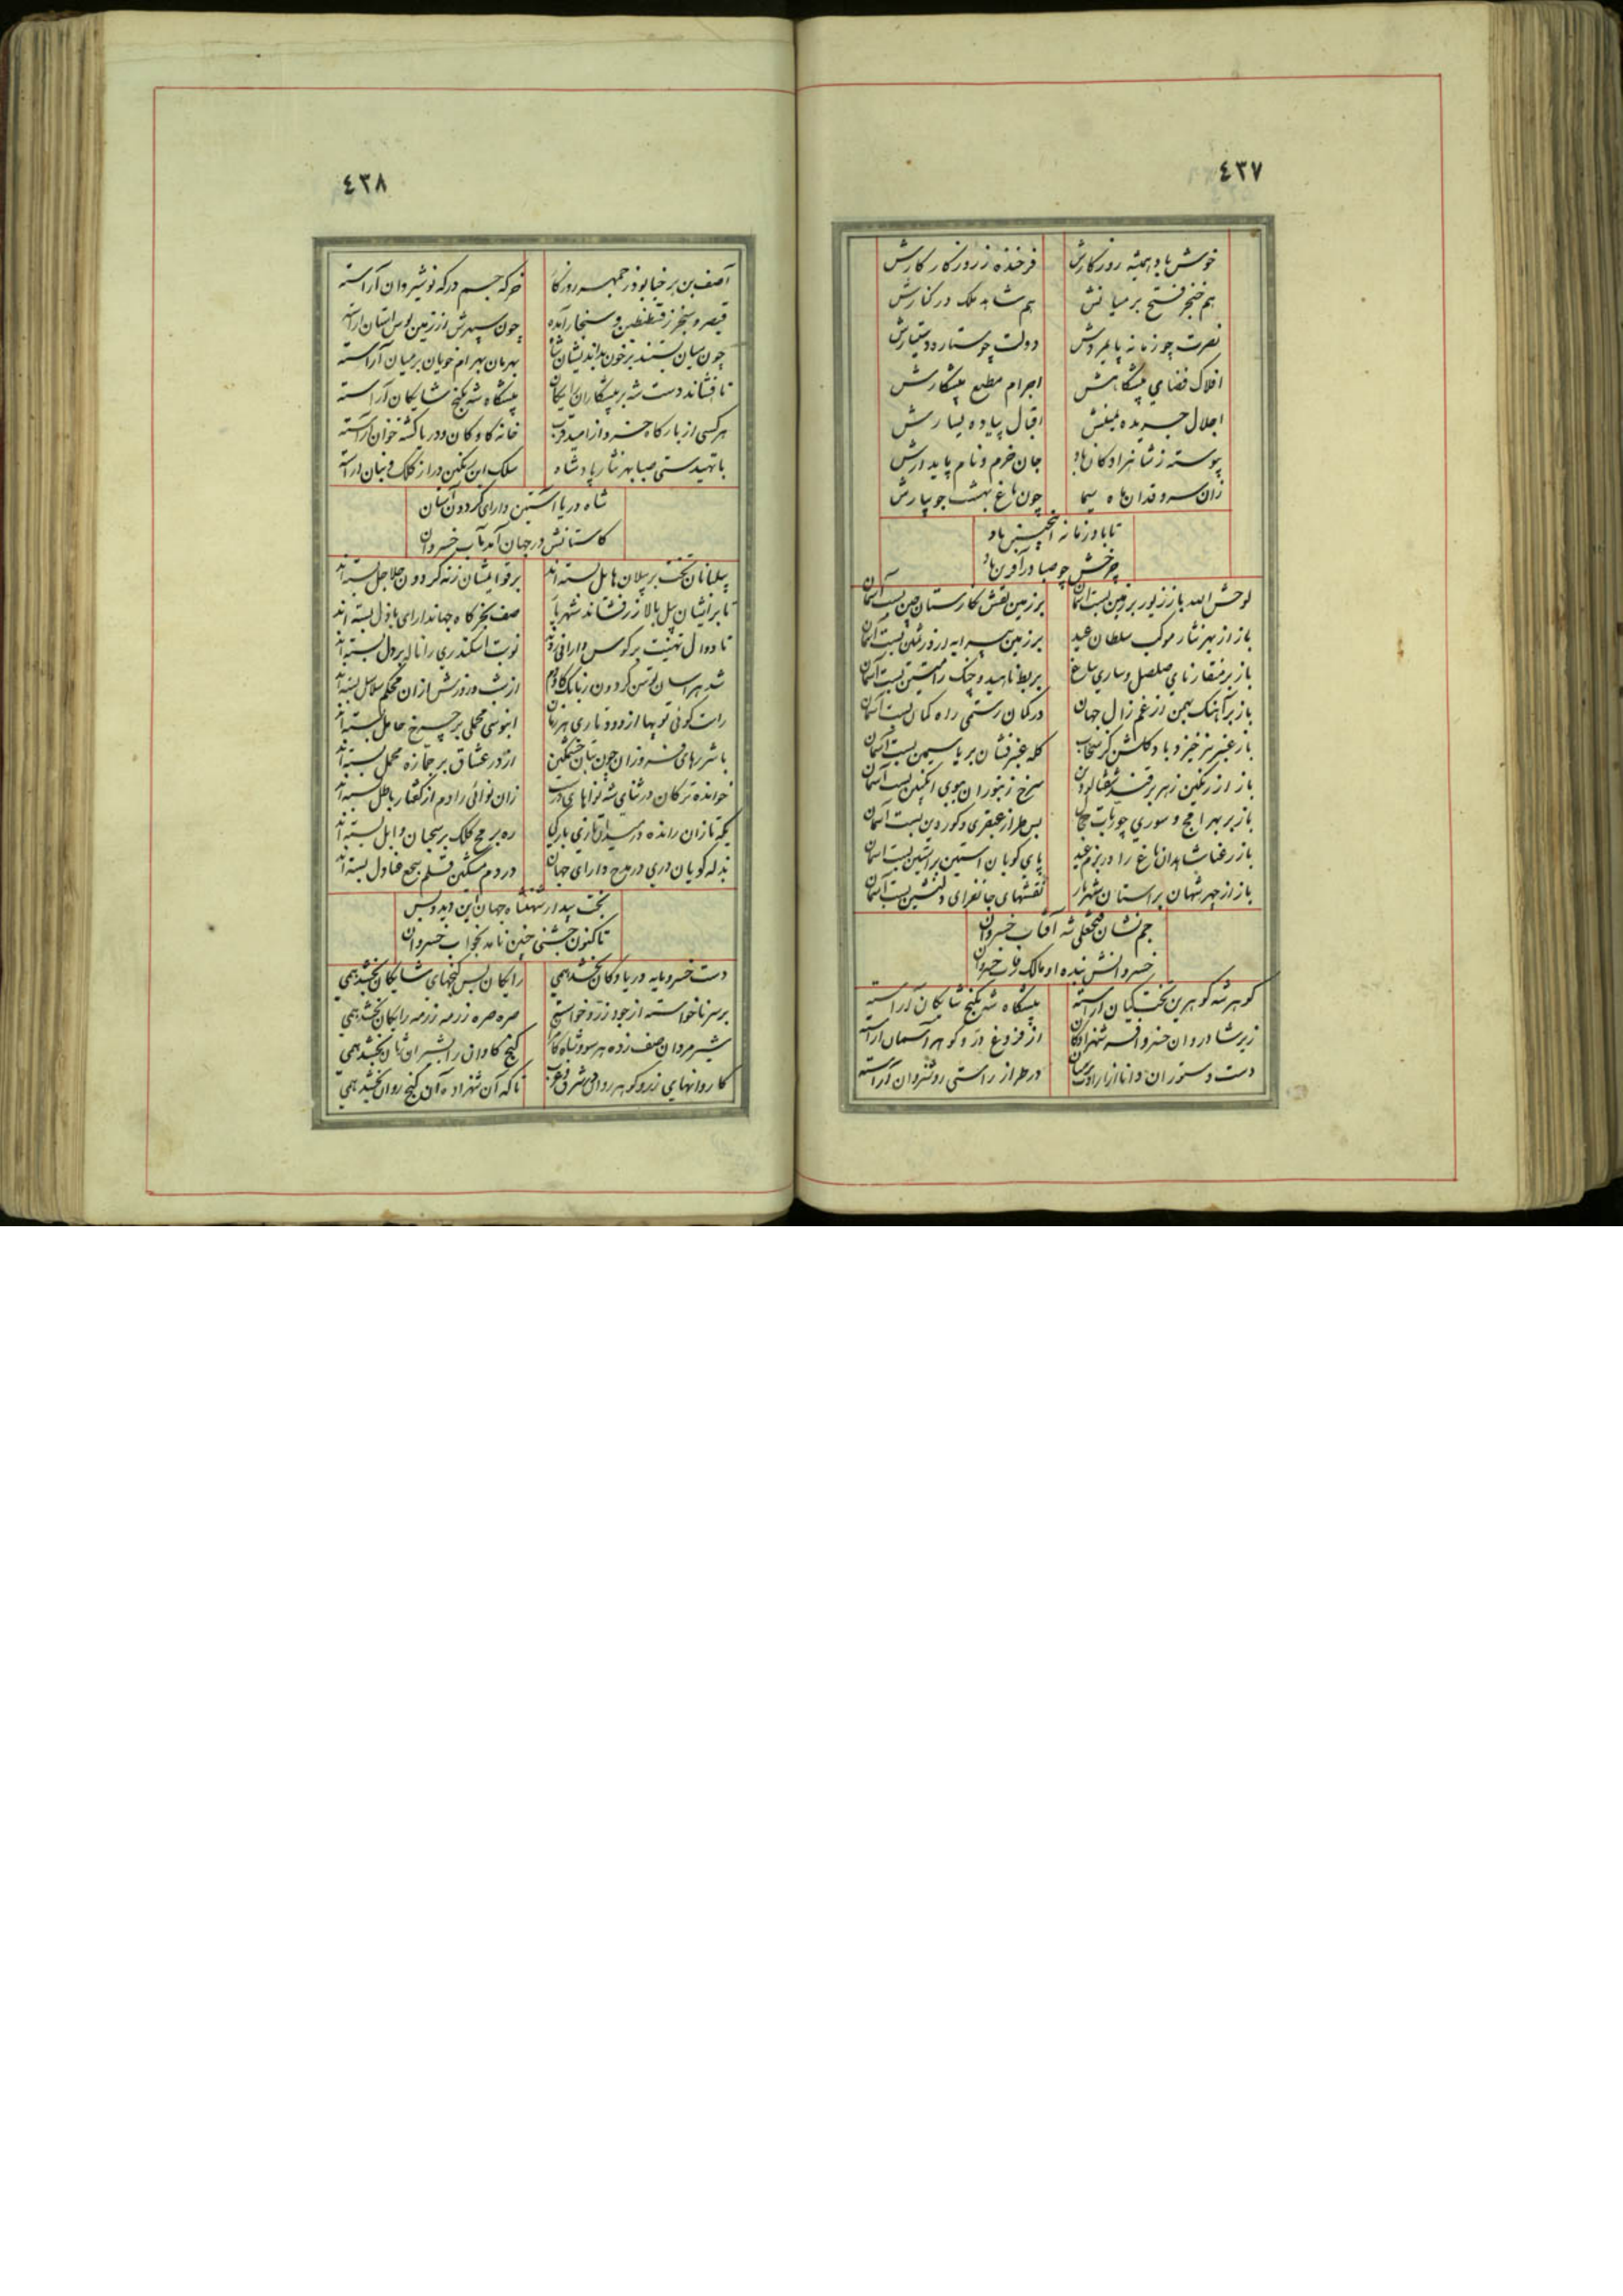 ٤٣٧
خوش باد همیشه روزکارش فرخنده ز روزکار کارش
هم خنجر فتح بر میانش هم شاهد ملک در کنارش
نصرت چو زمانه پایمردش دولت چو ستاره دستیارش
افلاک فضای پیشکاهش اجرام مطیع پیشکارش
اجلال جریده یمینش اقبال پیاده یسارش
پیوسته ز شاهزادکان باد جان خرم و نام پایدارش
زان سرو قدان ماه سیما چون باغ بهشت جویبارش
تا باد زمانه اینچنین باد
چرخش چو صبا در آفرین باد
لوحش الله باز زیور بر زمین بست آسمان بر زمین نقش نکارستان چین بست آسمان
باز از بهر نثار موکب سلطان عید بر زمین پیرایه از در ثمین بست آسمان
باز بر منقار نای صلصل و ساری باغ بربط ناهید و چنک رامتین بست آسمان
باز بر آهنک بهمن از غم زال جهان در کمان رستمی راه کمین بست آسمان
باز عنبر بیز خیزد باد کلشن کز سحاب کله عنبر فشان بر یاسمین بست آسمان
باز از رنکین زهر بر سرخ زنبوران بموی انکبین بست آسمان
باز بر بهرامج و سوری بس طراز عبقری و کوردین بست آسمان
باز رعنا شاهدان باغ را در بزم عید پای کوبان آستین بر آستین بست آسمان
باز از چهر شهان بر آستان شهریار نقشهای جانفزای دلنشین بست آسمان
جم نشان فتحعلی شه آفتاب خسروان
خسروانش بنده او مالک رقاب خسروان
کوهر شه کوهرین تخت کیان آراسته پیشکاه شه بکنج شایکان آراسته
زیر شادروان خسرو افسر شهزادکان از فروغ در و کوهر آسمان آراسته
دست دستوران دانا از ارادت بر میان در طراز راستی روشنروان آراسته
٤٣٨
آصف بن برخیا بوذرجمهر روزکار خرکه جم درکه نوشیروان آراسته
قیصر و سنجر ز قسطنطین و سنجار آمده چون سپهرش از زمین بوس آستان آراسته
چون میان بستند بر خون بداندیشان شاه بهرمان بهرام خویان بر میان آراسته
تا فشاند دست شه بر پیشکاران رایکان پیشکاه شه بکنج شایکان آراسته
هر کسی از بارکاه خسرو از امید قرب خانه کاو کان و دریا کشته خوان آراسته
با تهیدستی صبا بهر نثار پادشاه سلک این رنکین درر از کلک و بنان آراسته
شاه دریا آستین دارای کردون آستان
کاستانش در جهان آمد مآب خسروان
پیلبانان تخت بر پیلان هایل بسته اند بر قوایمشان ز نه کردون جلاجل بسته اند
تا بر ایشان پیل بالا زر فشاند شهریار صف بخرکاه جهاندارای باذل بسته اند
تا دوال تهنیت بر کوس دارائی زدند نوبت اسکندری را نای بر دل بسته اند
شد هراسان توسن کردون ز بانک کاودم از شب و روزش از آن محکم سلاسل بسته اند
راست کوئی توپها از دود تاری هر زمان آبنوسی محملی بر چرخ حامل بسته اند
با شررهای فروزان چون بتان خشمکین اژدر عشاق بر جمازه محمل بسته اند
خوانده ترکان در ثنای شه نواهای درست زان نوائی را دم از کفتار باطل بسته اند
یکه تازان رانده در میدان تازی بارکی ره برمح کلک بر سحبان وایل بسته اند
بذله کویان دری در مدح دارای جهان در دم مشکین قلم سجع عنادل بسته اند
بخت بیدار شهنشاه جهان این دید و بس
تا کنون جشنی چنین نامد بخواب خسروان
دست خسرو مایه دریا و کان بخشد همی رایکان بس کنجهای شایکان بخشد همی
بر سر ناخواسته از جود زر و خواسته صره صره زر مه زر مه رایکان بخشد همی
شیر مردان صف زده هر سو و شاه کامکار کنج کاوان را بشیران ژیان بخشد همی
کاروانهای زر و کوهر روان در شرق و غرب تا که آن شهزاده آن کنج روان بخشد همی